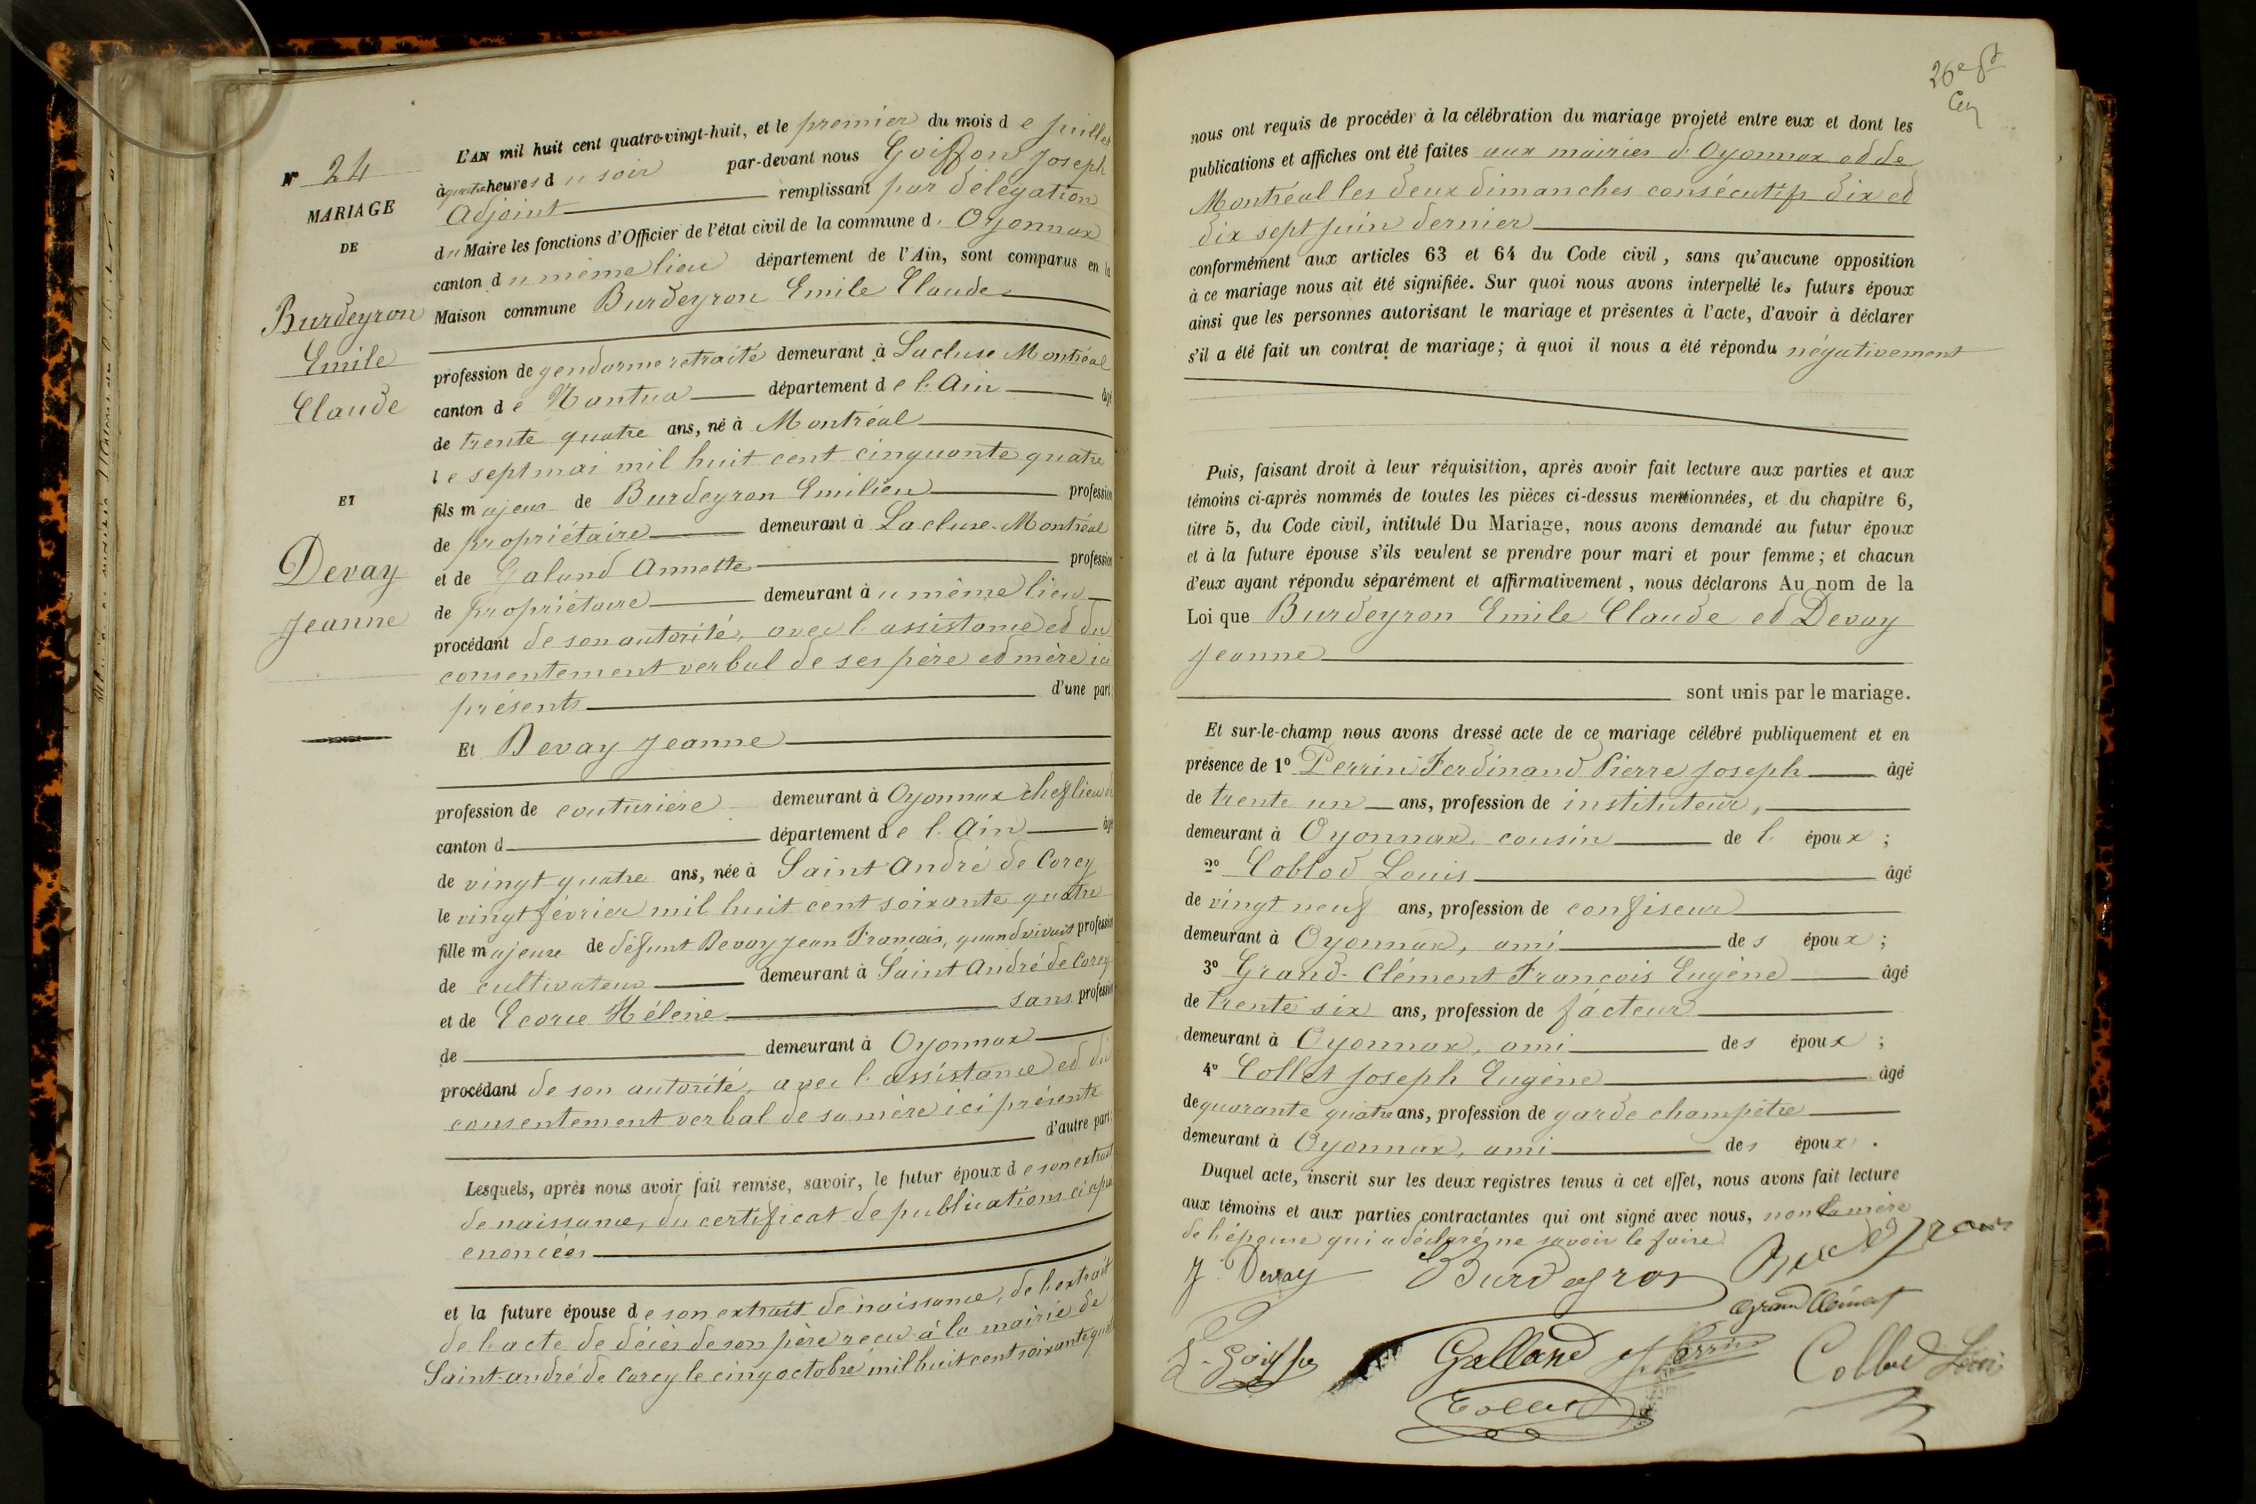 N° 24
MARIAGE
DE
Burdeyron
Emile
Claude
ET
Devay
Jeanne
L'AN mil huit cent quatre-vingt-huit, et le premier du mois de Juillet
à quatre heures du soir par-devant nous Goiffon Joseph
Adjoint remplissant par délégation
du Maire les fonctions d'Officier de l'état civil de la commune d'Oyonnax
canton du même lieu département de l'Ain, sont comparus en la
Maison commune Burdeyron Emile Claude
profession de gendarme retraité demeurant à Lacluse Montréal
canton de Nantua département de l'Ain âgé
de trente quatre ans, né à Montréal
le sept mai mil huit cent cinquante quatre
fils majeur de Burdeyron Emilien profession
de propriétaire demeurant à Lacluse-Montréal
et de Galand Annette profession
de propriétaire demeurant au même lieu
procédant de son autorité, avec l'assistance et du
consentement verbal de ses père et mère ici
présents d'une part;
Et Devay Jeanne
profession de couturière demeurant à Oyonnax chef lieu de
canton d département de l'Ain âgée
de vingt quatre ans, née à Saint André de Corcy
le vingt février mil huit cent soixante quatre
fille majeure de défunt Devay Jean François, quand vivait profession
de cultivateur demeurant à Saint André de Corcy
et de Ecorce Hélène sans profession
de demeurant à Oyonnax
procédant de son autorité, avec l'assistance et du
consentement verbal de sa mère ici présente
d'autre part;
Lesquels, après nous avoir fait remise, savoir, le futur époux de son extrait
de naissance, du certificat de publications ci après
énoncées
et la future épouse de son extrait de naissance, de l'extrait
de l'acte de décès de son père reçu à la mairie de
Saint-André de Corcy le cinq octobre mil huit cent soixante quat
26e ft
nous ont requis de procéder à la célébration du mariage projeté entre eux et dont les
publications et affiches ont été faites aux mairies d'Oyonnax et de
Montréal les deux dimanches consécutifs dix et
dix sept juin dernier
conformément aux articles 63 et 64 du Code civil, sans qu'aucune opposition
à ce mariage nous ait été signifiée. Sur quoi nous avons interpellé les futurs époux
ainsi que les personnes autorisant le mariage et présentes à l'acte, d'avoir à déclarer
s'il a été fait un contrat de mariage; à quoi il nous a été répondu négativement
Puis, faisant droit à leur réquisition, après avoir fait lecture aux parties et aux
témoins ci-après nommés de toutes les pièces ci-dessus mentionnées, et du chapitre 6,
titre 5, du Code civil, intitulé Du Mariage, nous avons demandé au futur époux
et à la future épouse s'ils veulent se prendre pour mari et pour femme; et chacun
d'eux ayant répondu séparément et affirmativement, nous déclarons Au nom de la
Loi que Burdeyron Emile Claude et Devay
Jeanne
sont unis par le mariage.
Et sur-le-champ nous avons dressé acte de ce mariage célébré publiquement et en
présence de 1° Perrin Ferdinand Pierre Joseph âgé
de trente un ans, profession de instituteur,
demeurant à Oyonnax, cousin de l'époux;
2° Collod Louis âgé
de vingt neuf ans, profession de confiseur
demeurant à Oyonnax, ami des époux;
3° Grand-Clément François Eugène âgé
de trente six ans, profession de facteur
demeurant à Oyonnax, ami des époux;
4° Collet Joseph Eugène âgé
de quarante quatre ans, profession de garde champêtre
demeurant à Oyonnax, ami des époux.
Duquel acte, inscrit sur les deux registres tenus à cet effet, nous avons fait lecture
aux témoins et aux parties contractantes qui ont signé avec nous, non la mère
de l'épouse qui a déclaré ne savoir le faire
J. Devay Burdeyron
Grand Clément
J. Goiffon Galland Perrin Collod Louis
Collet